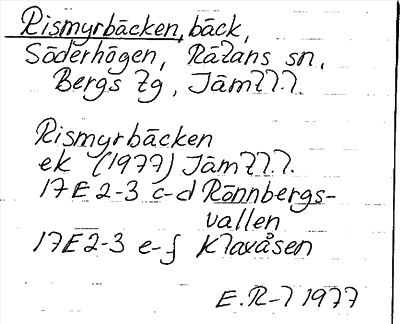 Rismyrbäcken, bäck,
Söderhögen, Rätans sn,
Bergs tg, Jämtl.
Rismyrbäcken
ek (1977) Jämtl.
17E 2-3 c-d Rönnbergs-
vallen
17E 2-3 e-f Klaxåsen
E.R-l 1977